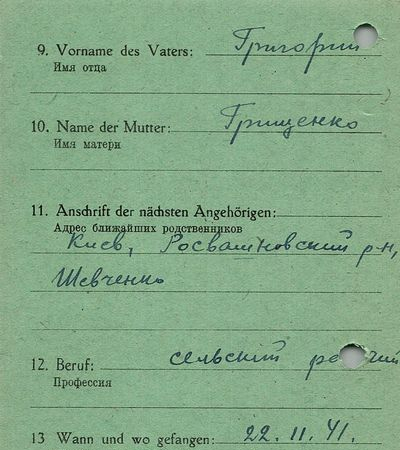 9. Vorname des Vaters: Григорий
Имя отца
10. Name der Mutter: Грищенко
Имя матери
11. Anschrift der nächsten Angehörigen:
Адрес ближайших родственников
Киев, Росвашновский р-н,
Шевченко
12. Beruf: сельский рабочий
Профессия
13 Wann und wo gefangen: 22. 11. 41.